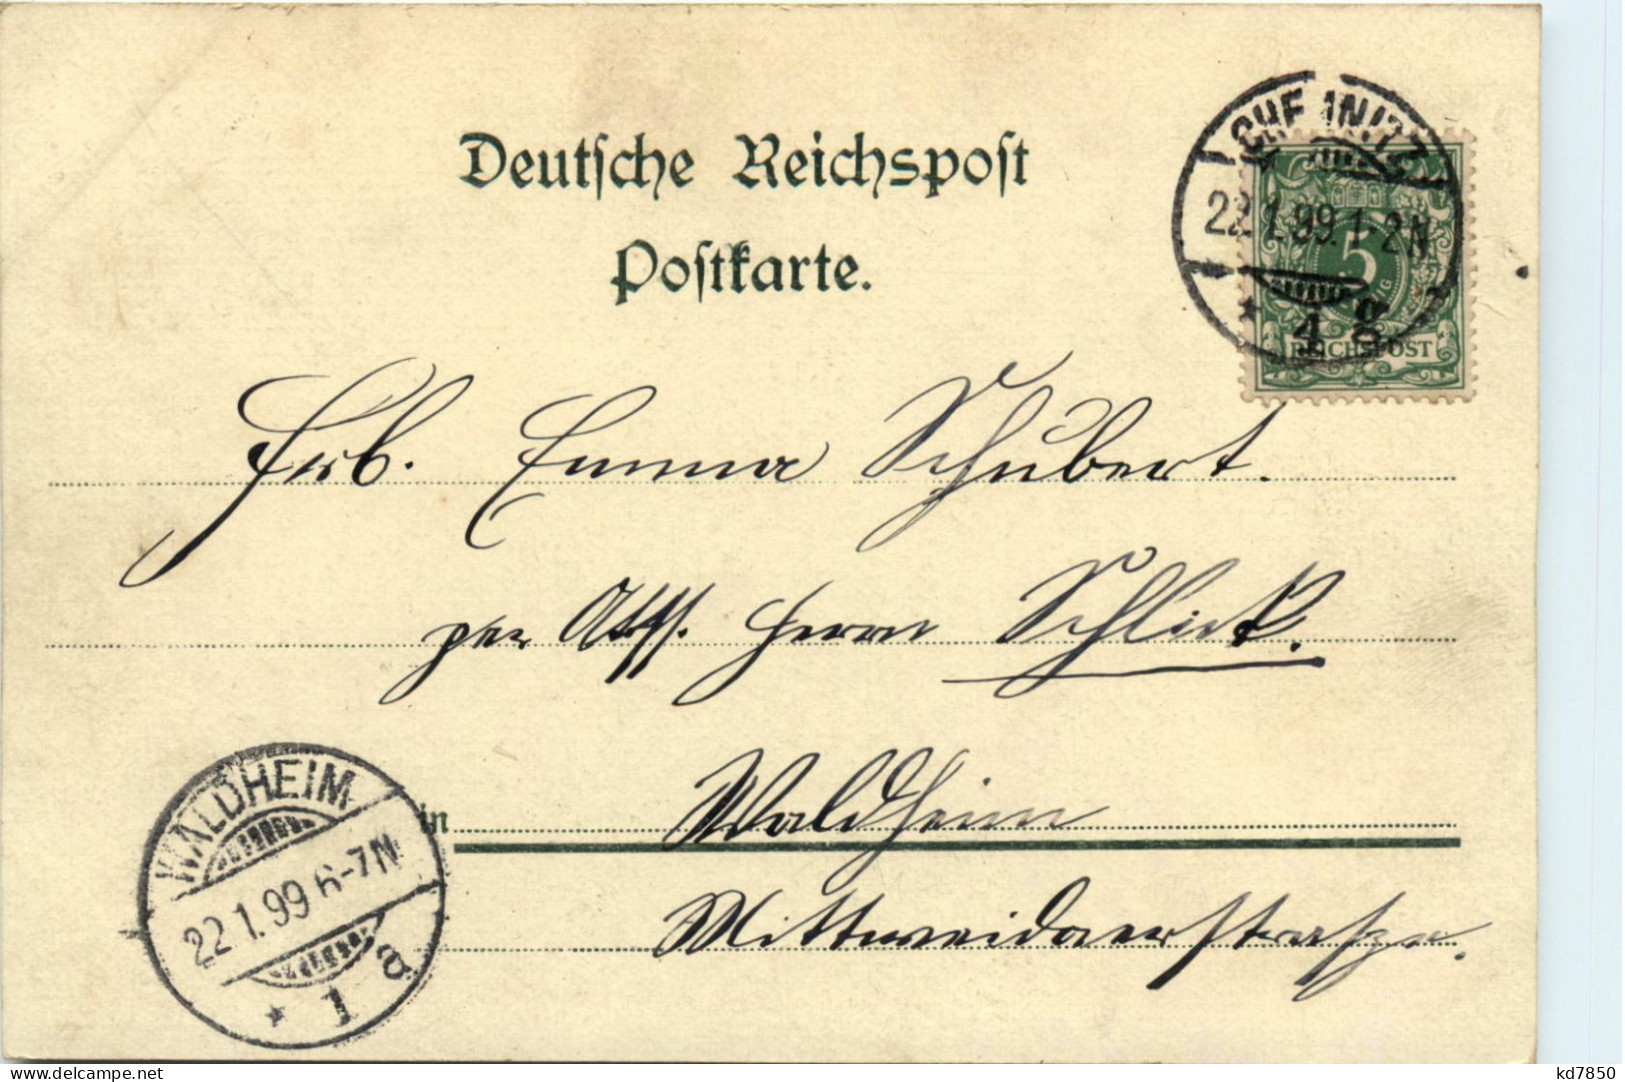 Deutsche Reichspost
Postkarte.
CHEMNITZ
22.1.99.1-2N
* 4 g
5
REICHSPOST
Frl. Emma Schubert.
per Adr. Herrn Schlick.
in Waldheim
Mittweidaerstraße.
WALDHEIM
22.1.99 6-7N
* 1 a
kd7850